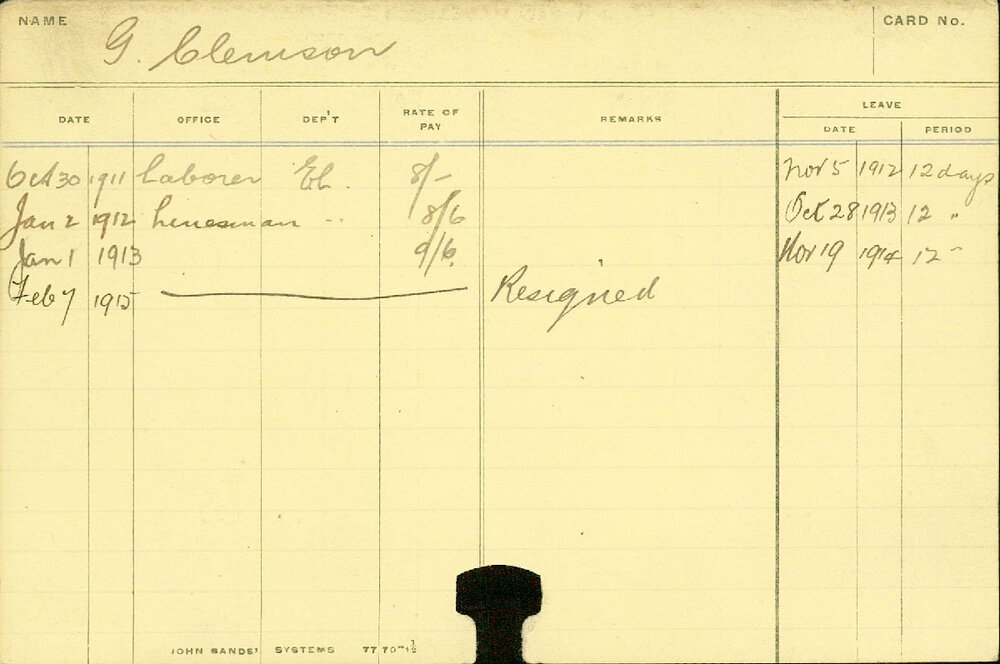 NAME G. Clemson CARD No.
DATE OFFICE DEP'T RATE OF PAY REMARKS LEAVE
DATE PERIOD
Oct 30 1911 Laborer El. 8/- Nov 5 1912 12 days
Jan 2 1912 Linesman " 8/6 Oct 28 1913 12 "
Jan 1 1913 9/6 Nov 19 1914 12 "
Feb 7 1915 Resigned
JOHN SANDS' SYSTEMS